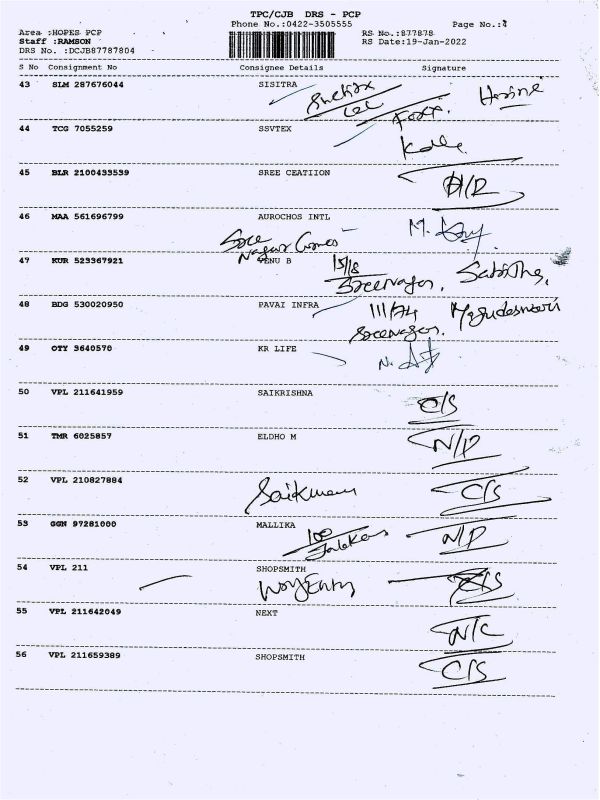 TPC/CJB DRS - PCP
Phone No.:0422-3505555 Page No.:
Area :HOPES PCP RS No.:877878
Staff :RAMSON RS Date:19-Jan-2022
DRS No. :DCJB87787804
S No Consignment No Consignee Details Signature
43 SLM 287676044 SISITRA
44 TCG 7055259 SSVTEX
45 BLR 2100433539 SREE CEATIION
D/R
46 MAA 561696799 AUROCHOS INTL
Sree
Nagar
47 KUR 523367921 VENU B 15/18
Sreenagar.
48 BDG 530020950 PAVAI INFRA 111/74
Sreenagar.
49 OTY 3640570 KR LIFE
50 VPL 211641959 SAIKRISHNA
C/S
51 TMR 6025857 ELDHO M
N/P
52 VPL 210827884
Saikumar C/S
53 GGN 97281000 MALLIKA
100 N/P
54 VPL 211 SHOPSMITH
C/S
55 VPL 211642049 NEXT
N/C
56 VPL 211659389 SHOPSMITH
C/S